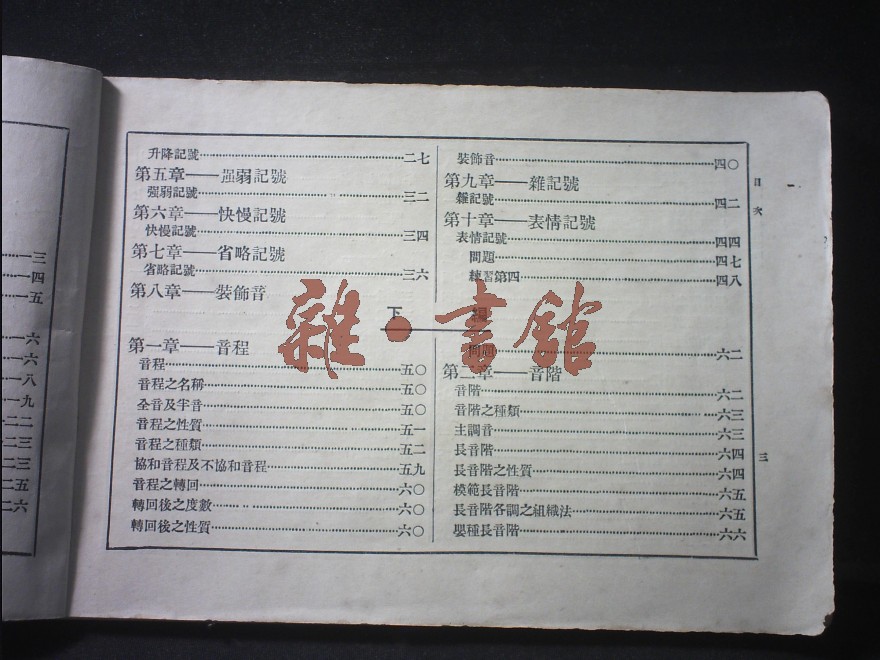 升降記號……二七
第五章——强弱記號
强弱記號……三二
第六章——快慢記號
快慢記號……三四
第七章——省略記號
省略記號……三六
第八章——裝飾音
裝飾音……四〇
第九章——雜記號
雜記號……四二
第十章——表情記號
表情記號……四四
問題……四七
練習第四……四八
下
第一章——音程
音程……五〇
音程之名稱……五〇
全音及半音……五〇
音程之性質……五一
音程之種類……五二
協和音程及不協和音程……五九
音程之轉回……六〇
轉回後之度數……六〇
轉回後之性質……六〇
問題……六二
第二章——音階
音階……六二
音階之種類……六三
主調音……六三
長音階……六四
長音階之性質……六四
模範長音階……六五
長音階各調之組織法……六五
嬰種長音階……六六
目次
三
雜·書館
一三
一四
一五
一六
一六
一八
一九
二二
二三
二三
二五
二六